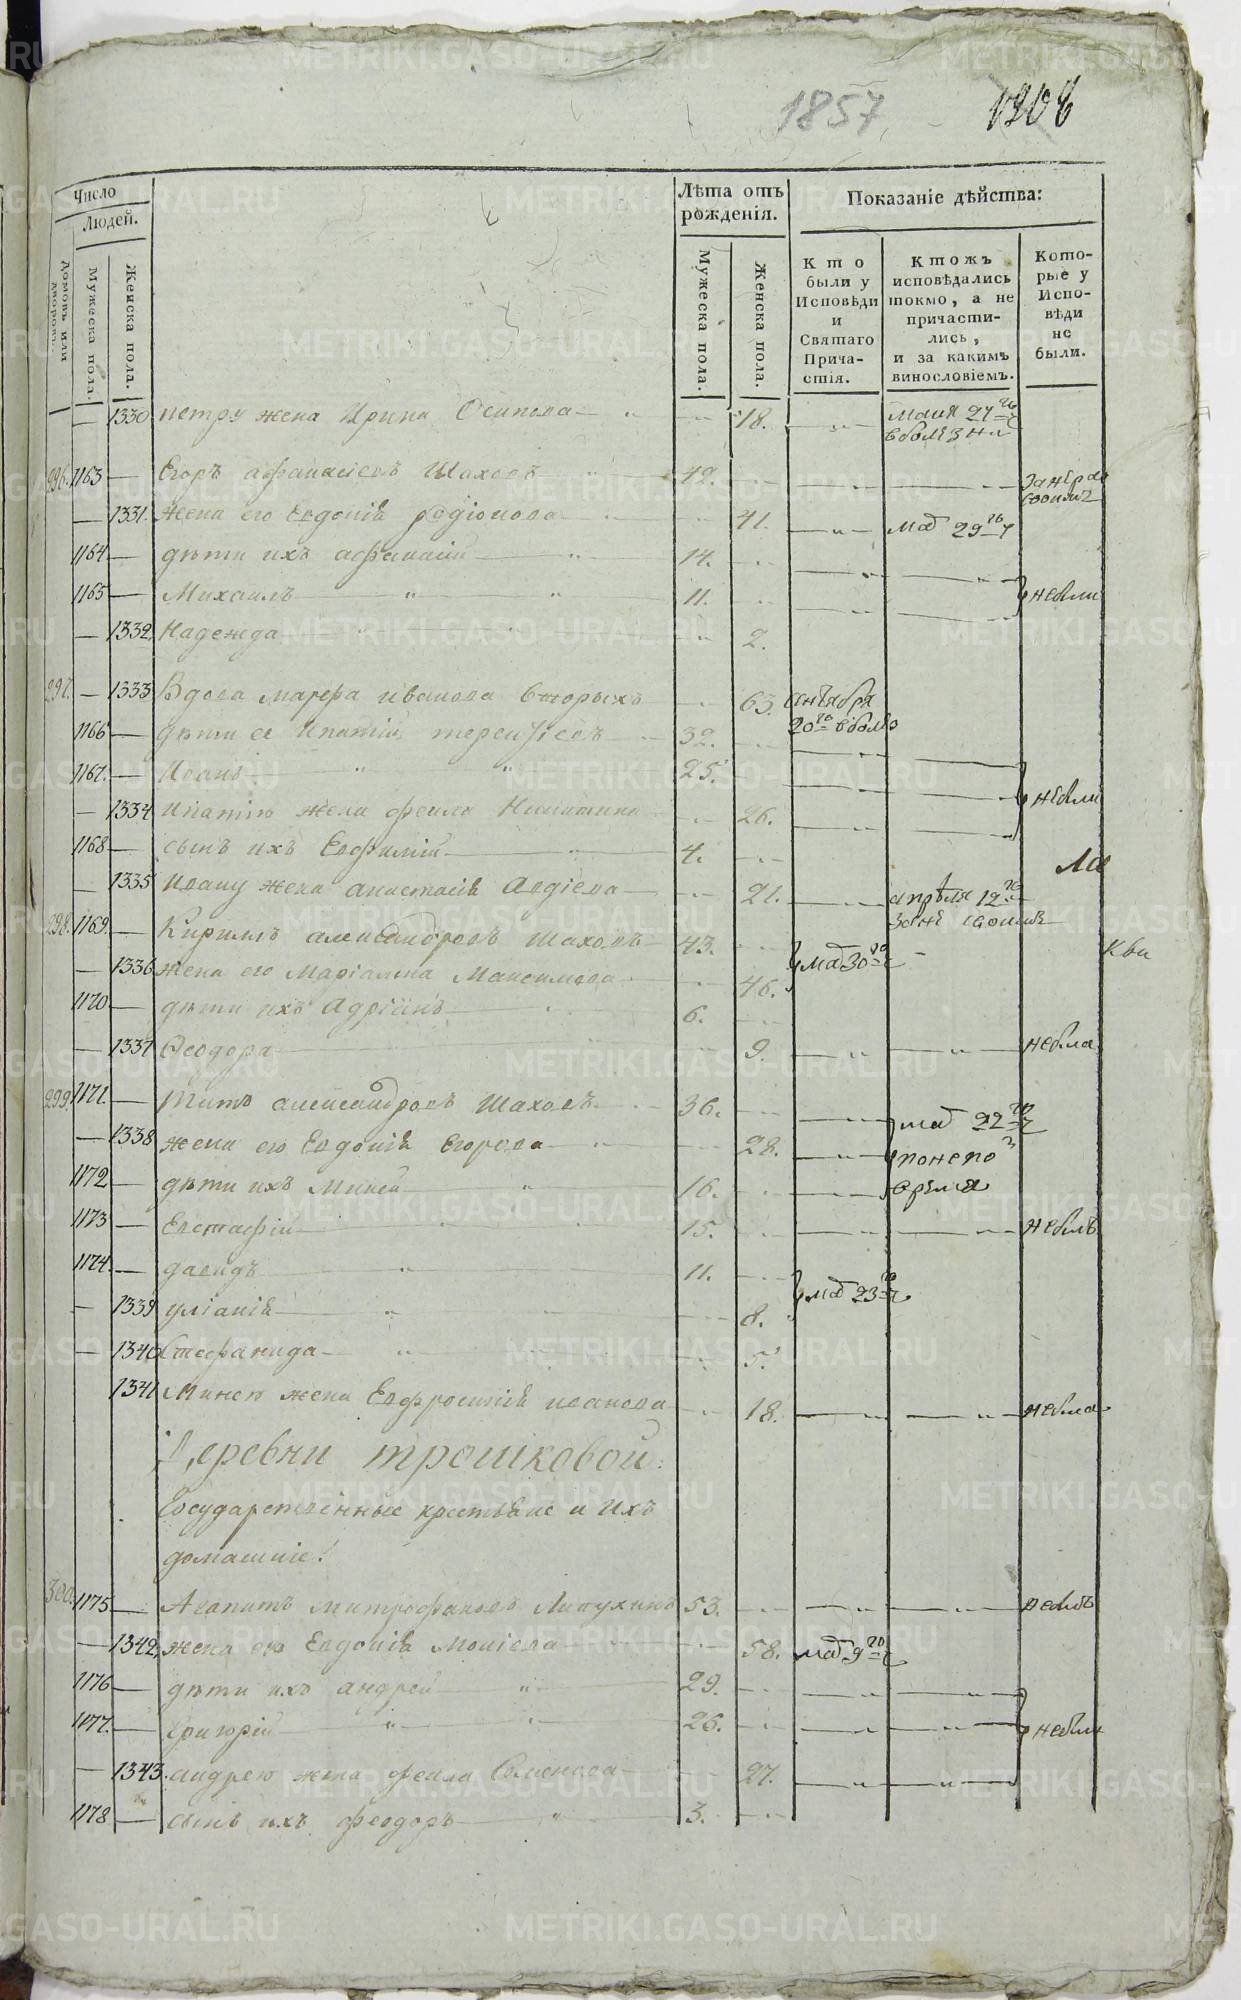 1857
1208
Число
Людей.
Домовъ или дворовъ.
Мужеска пола.
Женска пола.
Лѣта отъ рожденія.
Мужеска пола.
Женска пола.
Показаніе дѣйства:
Кто были у Исповѣди и Святаго Причастія.
Ктожъ исповѣдались токмо, а не причастились, и за какимъ винословіемъ.
Которые у Исповѣди не были.
— 1330 петру жена Ирина Осипова — 18. мaiя 27 го ч
в болезни
296. 1163 — Егоръ афанасіевъ Шаховъ 42.
— 1331. жена его Евдокія родіонова 41. маӏ 29 го ч
1164 — дѣти ихъ афанасій 14.
1165 — Михаилъ 11. небыли
— 1332. Надежда 2.
297. — 1333 Вдова марфа иванова Вторыхъ 63. сентября
20 го в болез
1166 — дѣти ее Ипатій терентіевъ 32.
1167. — Иванъ 25. небыли
— 1334 ипатію жена фекла Никитина 26.
1168 — сынъ ихъ Евфимій 4.
— 1335 Ивану жена анастасія Авдіева — 21. апрѣля 12 го
298. 1169. — Кириллъ александровъ Шаховъ 43. маӏ 30 го ч
— 1336 жена его Маріамна Максимова 46.
1170 — дѣти ихъ Адріанъ 6.
— 1337 Ѳеодора 9. небыла
299. 1171. — титъ александровъ Шаховъ 36. маӏ 22 го ч
— 1338 жена его Евдокія Егорова 28.
1172 — дѣти ихъ Миней 16. время
1173 — Евстафій 15. небылъ
1174. — давидъ 11. маӏ 23 го ч
— 1339 уліанія 8.
— 1340 Стефанида 5.
1341 Минею жена Евфросинія иванова 18. небыла
Деревни трошковой
Государственные крестьяне и ихъ
домашніе:
300. 1175 — Агапитъ митрофановъ Липухинъ 53. небылъ
— 1342. жена его Евдокія Мокіева 58. маӏ 9 го ч
1176 — дѣти ихъ андрей 29.
1177. — Григорій 26. небыли
— 1343. андрею жена фекла Семенова 27.
1178 — сынъ ихъ феодоръ 3.
METRIKI.GASO-URAL.RU